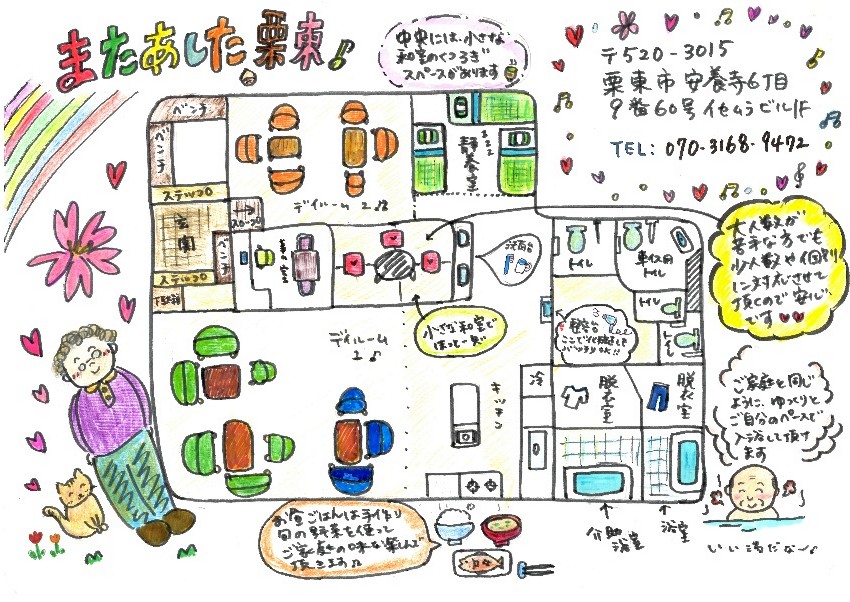 またあした栗東♪
中央には、小さな
和室のくつろぎ
スペースがあります
〒520-3015
栗東市安養寺6丁目
9番60号 イセムラビル1F
TEL: 070-3168-9472
ベンチ
ベンチ
ステップ
玄関
スロープ
ベンチ
ステップ
下駄箱
デイルーム2
静養室
洗面台
トイレ
車イス用
トイレ
トイレ
トイレ
大人数が
苦手な方でも
少人数や個別
に対応させて
頂くので安心
です
小さな和室で
ほっと一息
ここで化粧直しも
バッチリOK!!
デイルーム
1
キッチン
冷
脱衣室
脱衣室
ご家庭と同じ
ように、ゆっくりと
ご自分のペースで
入浴して頂け
ます
介助
浴室
浴室
いい湯だな〜♪
お昼ごはんは手作り
旬の野菜を使って
ご家庭の味を楽しんで
頂きます♪